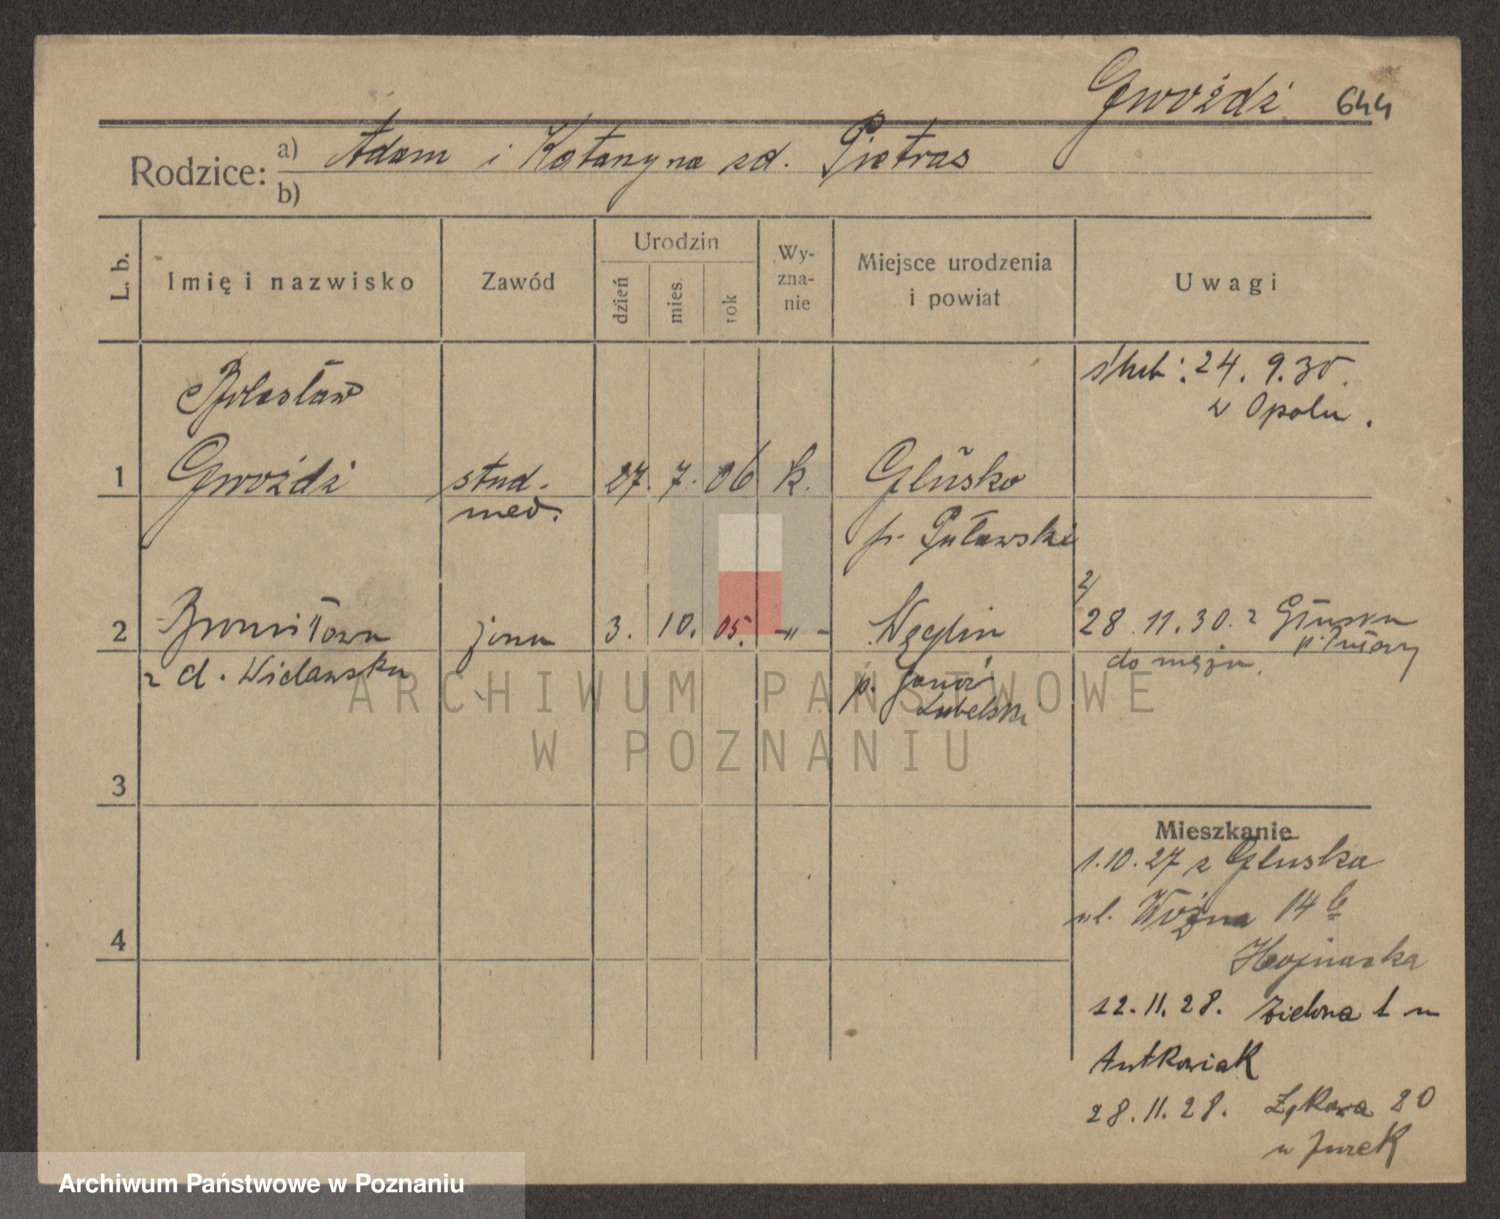 Gwoźdź 644
Rodzice: a) Adam i Katarzyna zd. Pietras
b)
L. b.
Imię i nazwisko
Zawód
Urodzin
dzień
mies.
rok
Wy-
zna-
nie
Miejsce urodzenia
i powiat
Uwagi
Bolesław
ślub: 24. 9. 30.
w Opolu.
1 Gwoźdź stud. 27. 7. 06 k. Głusko
med.
p. Puławski
2 Bronisława żona 3. 10. 05. -"-
z d. Widawska
p. Janów
Lubelski
2/
28. 11. 30. z Głuska
p. Puławy
do męża.
3
4
Mieszkanie
1.10.27 z Głuska
ul. Woźna 14 b
Hojnacka
12. 11. 28. Zielona 1 u
Antkowiak
28. 11. 28. Łąkowa 20
u Jurek
ARCHIWUM PAŃSTWOWE
W POZNANIU
Archiwum Państwowe w Poznaniu